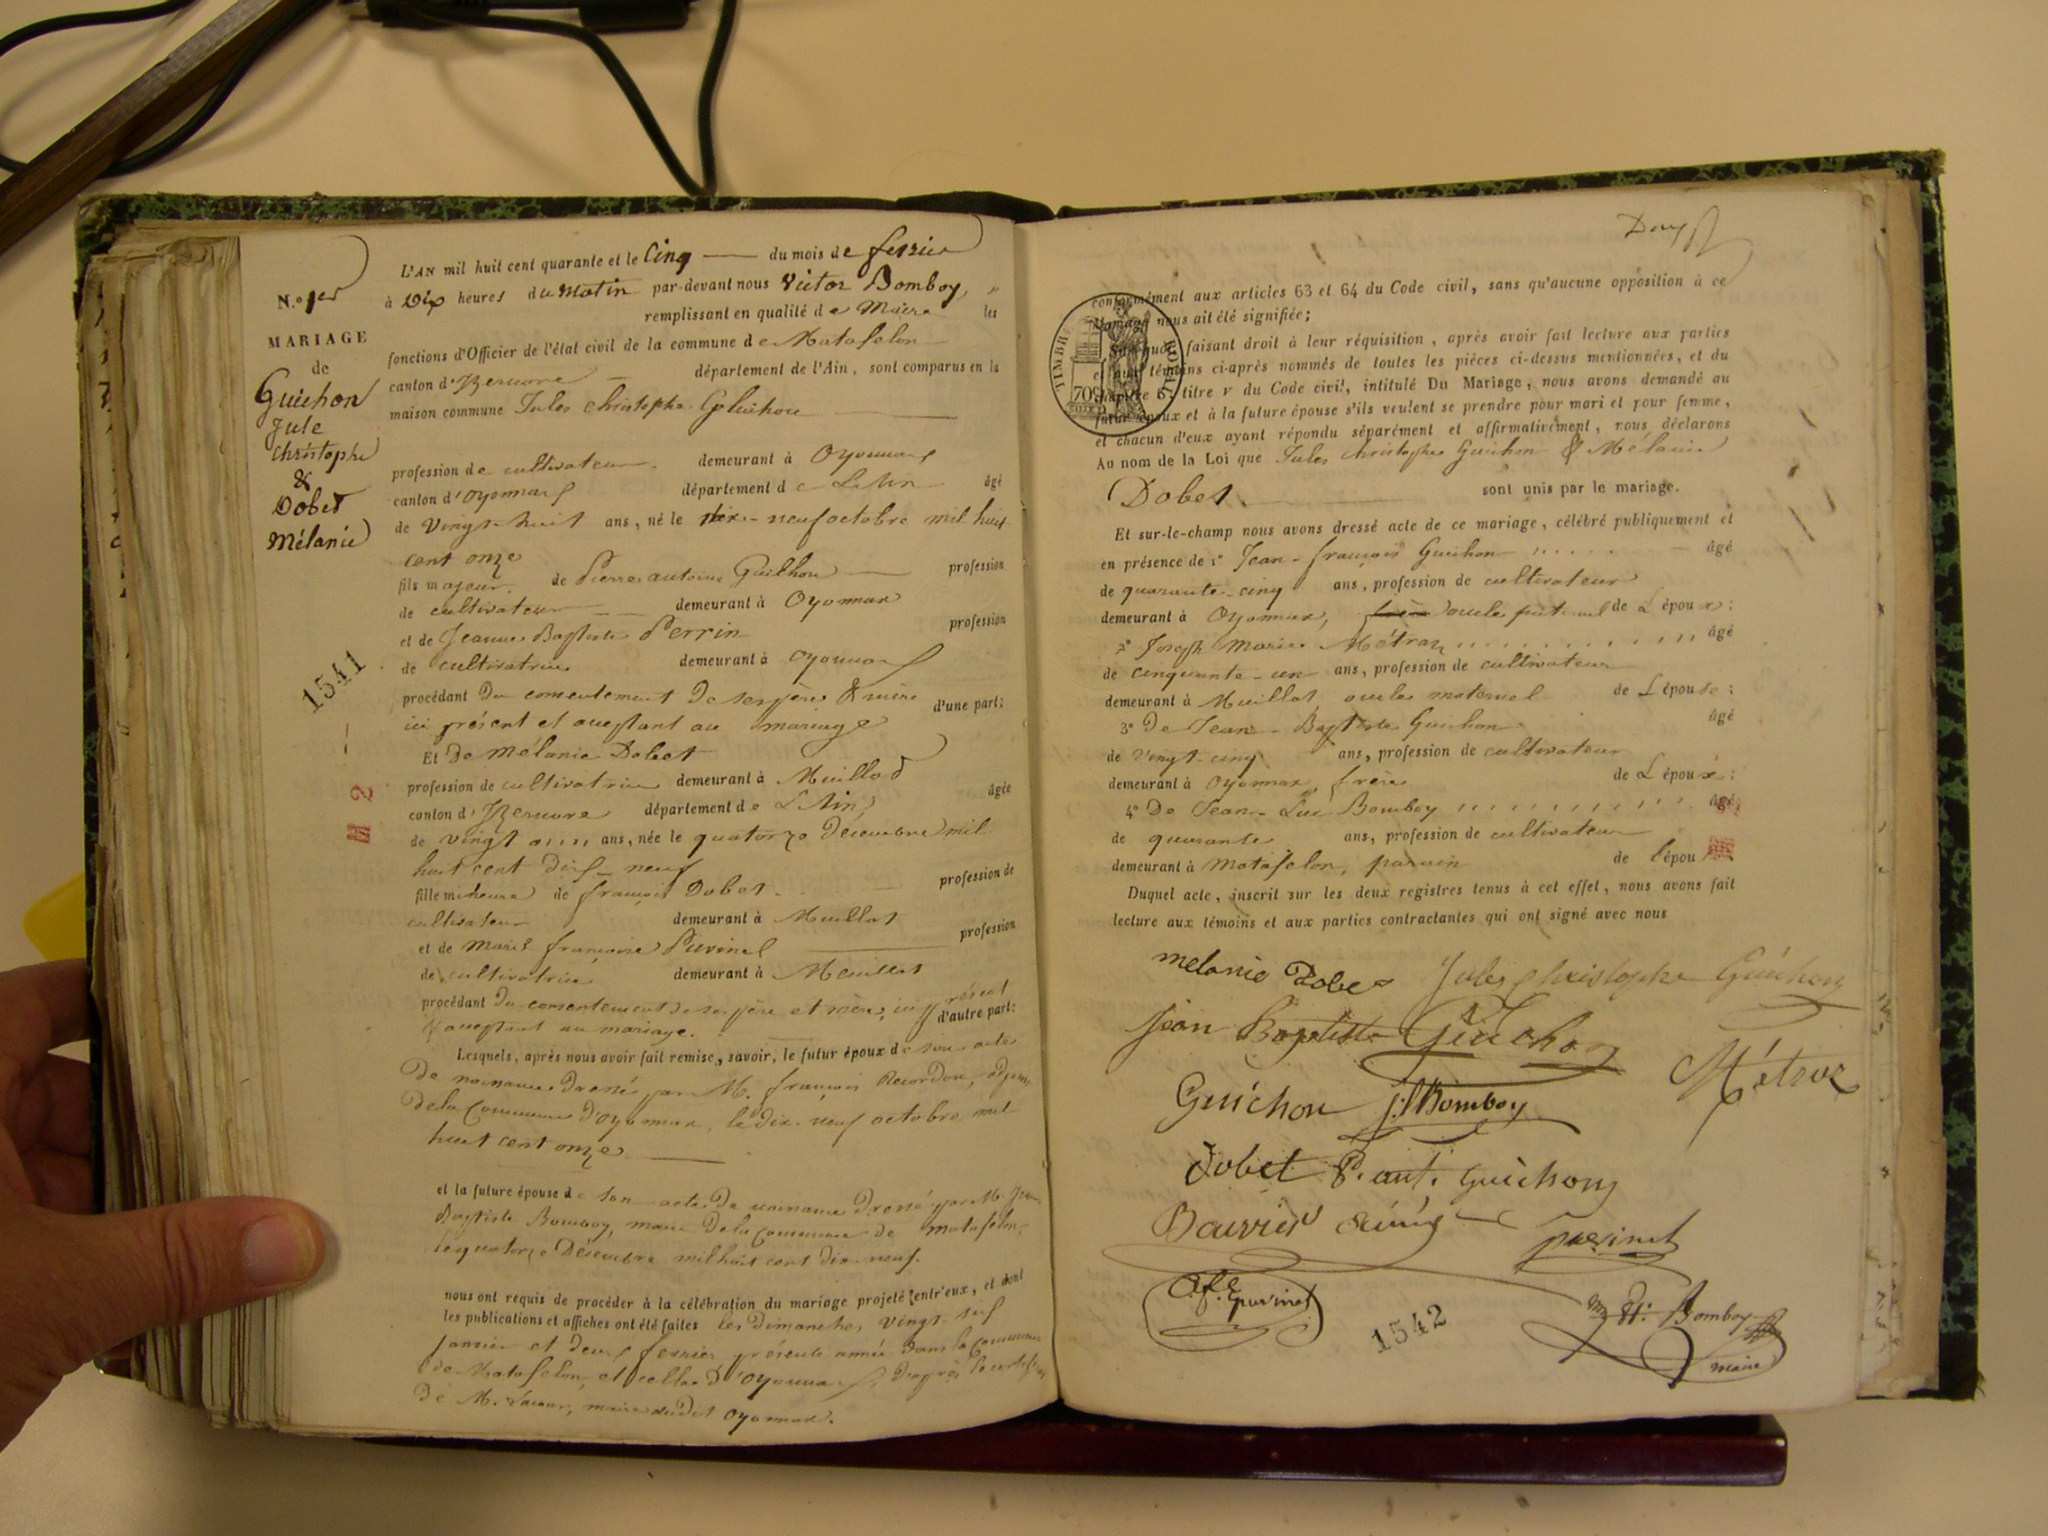 N.º 1er
MARIAGE
de
Guichon
Jule
Christophe
&
Dobet
Mélanie
1541
M 2
L'AN mil huit cent quarante et le Cinq du mois de fevrier
à Dix heures du Matin par-devant nous Victor Bomboy,
remplissant en qualité de Maire les
fonctions d'Officier de l'état civil de la commune de Matafelon
canton d'Izernore département de l'Ain, sont comparus en la
maison commune Jules Christophe Guichon
profession de cultivateur demeurant à Oyonnax
canton d'Oyonnax département de L'Ain âgé
de Vingt-huit ans, né le dix-neuf octobre mil huit
cent onze
fils majeur de Pierre antoine Guichon profession
de cultivateur demeurant à Oyonnax
et de Jeanne Baptiste Perrin profession
de cultivatrice demeurant à Oyonnax
procédant du consentement de ses père & mère d'une part;
ici présent et acceptant au mariage
Et de Mélanie Dobet
profession de cultivatrice demeurant à Meillat
canton d'Izernore département de L'Ain âgée
de vingt ans, née le quatorze Décembre mil
huit cent dix-neuf
fille mineure de françois Dobet profession de
cultivateur demeurant à Meuillat
et de Marie françoise Puvinel profession
de cultivatrice demeurant à Meuillat
procédant du consentement de ses père et mère, ici présent d'autre part;
& acceptant au mariage.
Lesquels, après nous avoir fait remise, savoir, le futur époux de son acte
de naissance dressé par M. françois Recordon, adjoint
de la Commune d'oyonnax, le dix-neuf octobre mil
huit cent onze
et la future épouse de son acte de naissance dressé par M. Jean
Baptiste Bomboy, maire de la Commune de matafelon,
le quatorze Décembre mil huit cent dix-neuf.
nous ont requis de procéder à la célébration du mariage projeté entr'eux, et dont
les publications et affiches ont été faites les dimanches vingt-six
janvier et deux fevrier présente année dans la Commune
de Matafelon, et celle d'Oyonnax, d'après le certificat
de M. maire dudit oyonnax.
TIMBRE ROYAL
70c
conformément aux articles 63 et 64 du Code civil, sans qu'aucune opposition à ce
Mariage nous ait été signifiée;
Sur quoi, faisant droit à leur réquisition, après avoir fait lecture aux parties
et aux témoins ci-après nommés de toutes les pièces ci-dessus mentionnées, et du
chapitre 6, titre v du Code civil, intitulé Du Mariage, nous avons demandé au
futur époux et à la future épouse s'ils veulent se prendre pour mari et pour femme,
et chacun d'eux ayant répondu séparément et affirmativement, nous déclarons
Au nom de la Loi que Jules Christophe Guichon & Mélanie
Dobet sont unis par le mariage.
Et sur-le-champ nous avons dressé acte de ce mariage, célébré publiquement et
en présence de 1º Jean-françois Guichon âgé
de quarante-cinq ans, profession de cultivateur
demeurant à Oyonnax, oncle paternel de L'époux;
2º Joseph Marie Métraz âgé
de cinquante-un ans, profession de cultivateur
demeurant à Meuillat, oncle maternel de L'épouse;
3º De Jean-Baptiste Guichon âgé
de Vingt-cinq ans, profession de cultivateur
demeurant à Oyonnax, frère de L'époux;
4º De Jean-Luc Bomboy âgé
de quarante ans, profession de cultivateur
demeurant à Matafelon, parrain de l'épou
Duquel acte, inscrit sur les deux registres tenus à cet effet, nous avons fait
lecture aux témoins et aux parties contractantes qui ont signé avec nous
melanie Dobet Jules christophe Guichon
Jean Baptiste Guichon
Métraz
Guichon j: l Bomboy
Dobet P. ant. Guichon
puvinel
puvinel
Bomboy
maire
1542